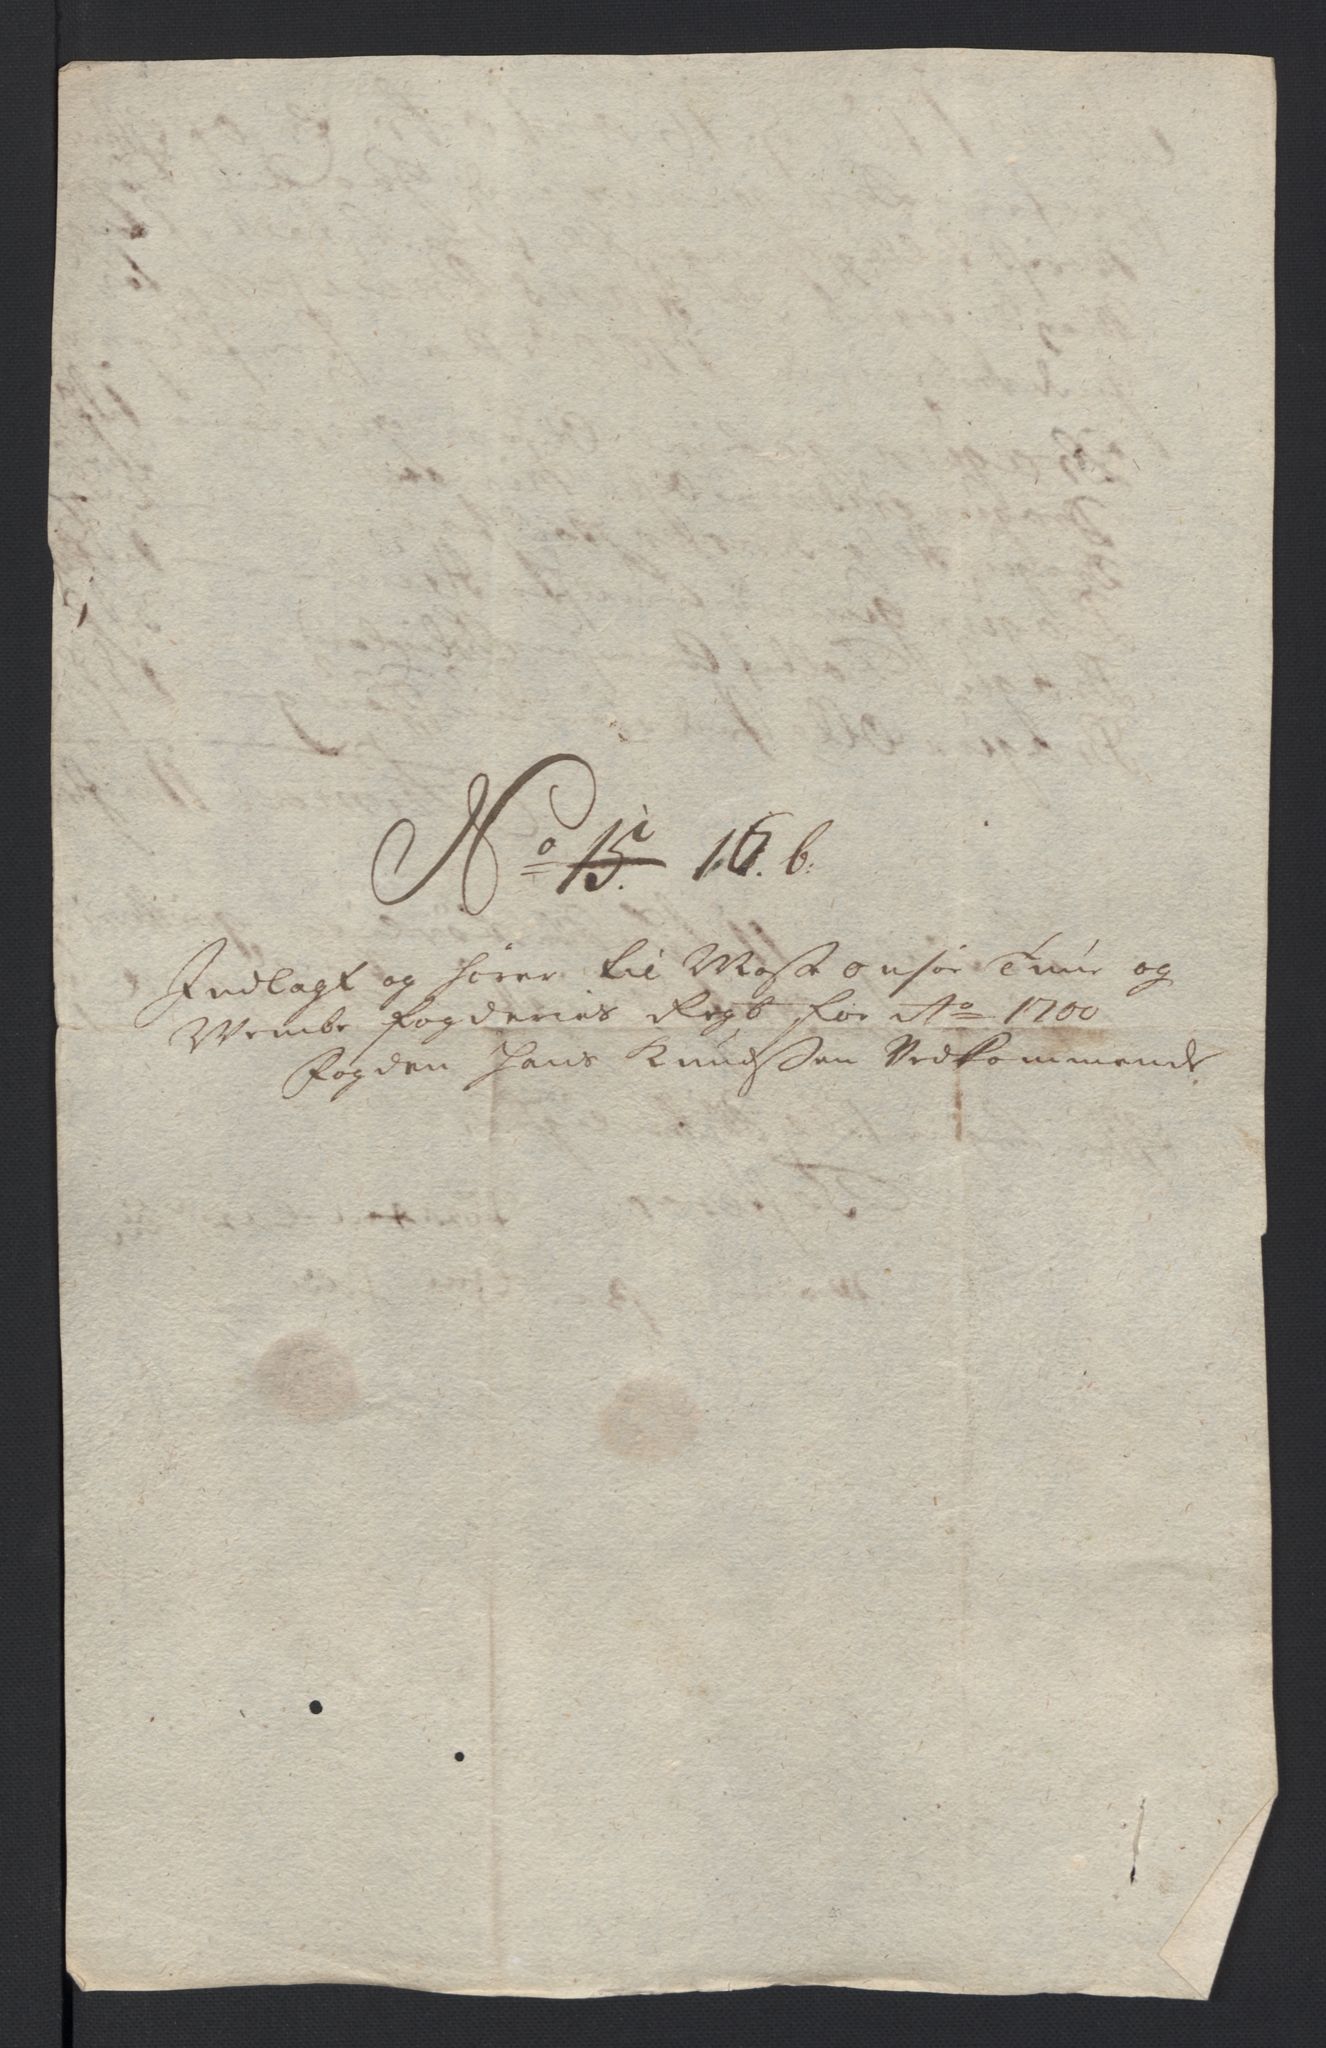 No 15. 16. b.
Indlagt og hörer til Moss onsöe Tune og
Wembe fogderies Regb for Ao 1700
fogden Hans Knudssen Vedkommende